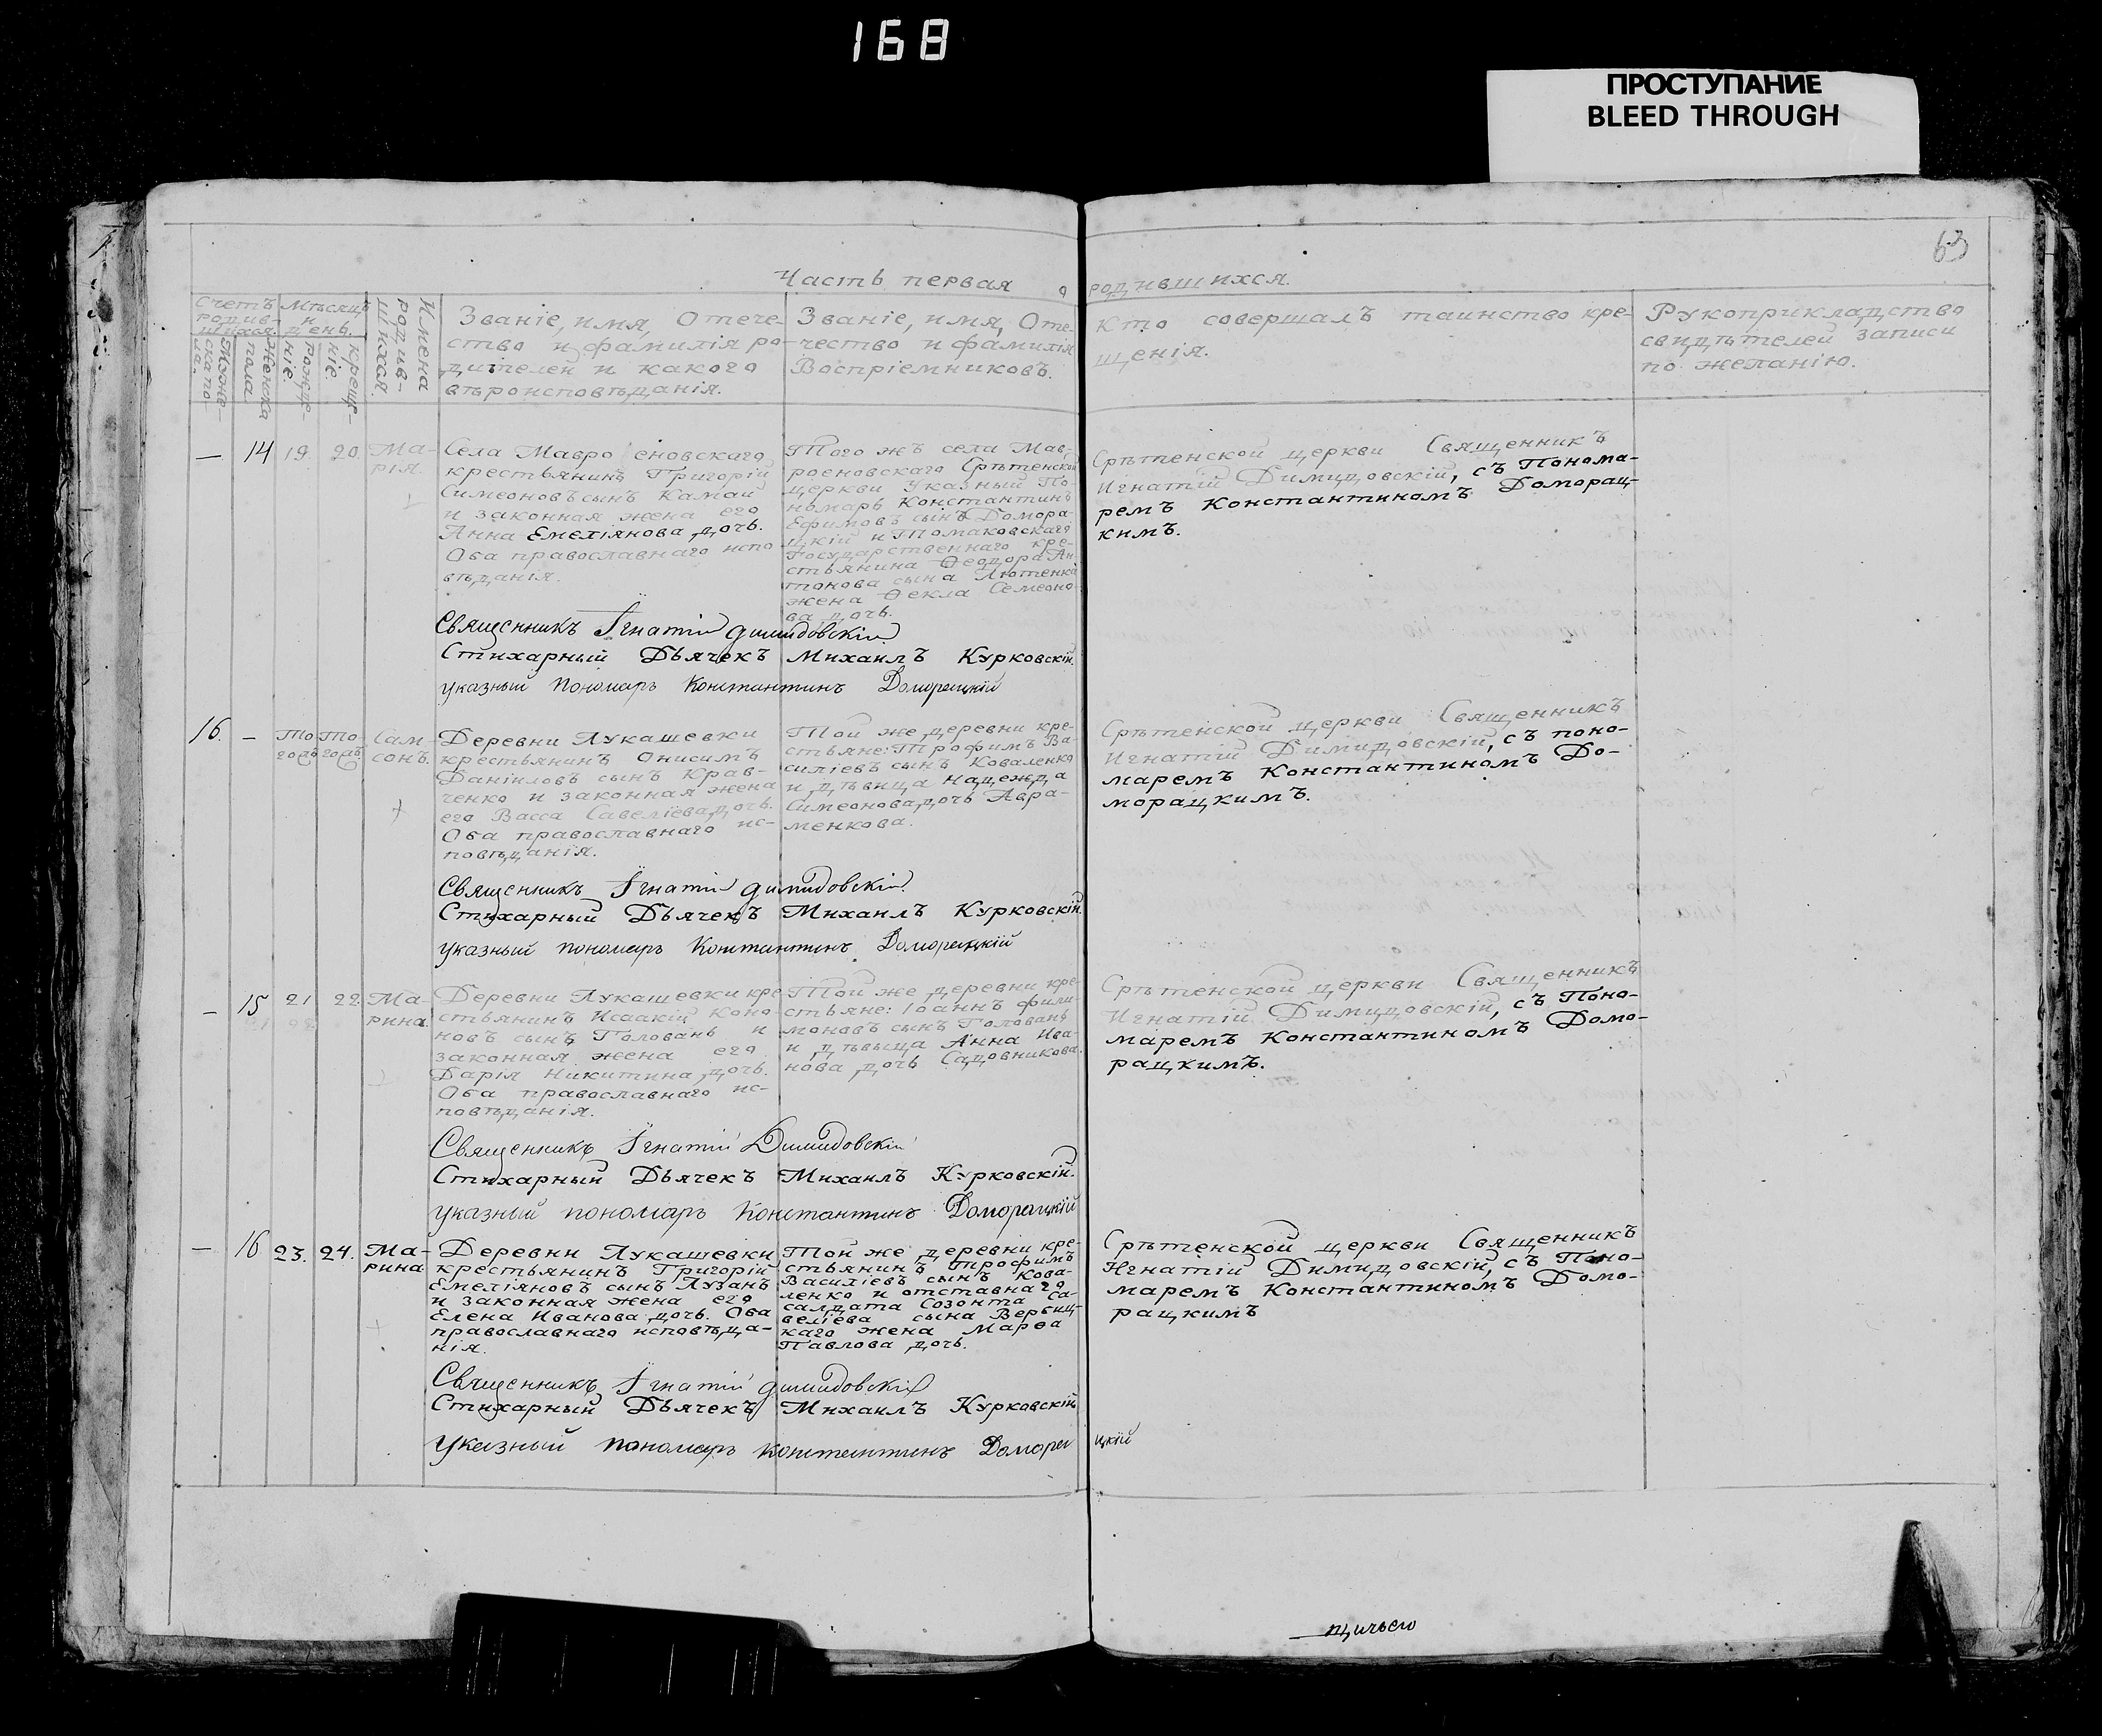 168
ПРОСТУПАНИЕ
BLEED THROUGH
63
Часть первая о родившихся.
Счетъ родив-шихся.
Мѣсяцъ и день.
Имена родив-шихся.
Мужеска пола.
Женска пола
Рожде-ніе.
Креще-ніе
Званіе, имя, Отече-
ство и фамилія ро-
дителей и какого
вѣроисповѣданія.
Званіе, имя, Оте-
чество и фамилія
Воспріемниковъ.
Кто совершалъ таинство кре-
щенія.
Рукоприкладство
свидѣтелей записи
по желанію.
— 14 19. 20. Ма-
рія.
Села Мавро еновскаго
крестьянинъ Григорій
Симеоновъ сынъ Камай
и законная жена его
Анна Емеліянова дочь.
Оба православнаго испо
вѣданія.
Того жъ села Мав-
роеновскаго Срѣтенской
церкви Указный По-
номарь Константинъ
Ефимовъ сынъ Домора-
цкій и Томаковскаго
Государственнаго кре-
стьянина Ѳеодора Ан-
тонова сына Лютенка
жена Ѳекла Семеоно-
ва дочь.
Срѣтенской церкви Священникъ
Игнатій Димидовскій, съ Понома-
ремъ Константиномъ Доморац-
кимъ.
Священникъ Ігнатій Димидовскій
Стихарный Дьячекъ Михаилъ Курковскій.
указный Пономарь Константинъ Доморацкій
16. — То го 20 То го 20 Сам-
сонъ.
Деревни Лукашевки
крестьянинъ Онисимъ
Даніиловъ сынъ Крав-
ченко и законная жена
его Васса Савеліева дочь.
Оба православнаго ис-
повѣданія.
Той же деревни кре-
стьяне: Трофимъ Ва-
силіевъ сынъ Коваленко
и дѣвица Надежда
Симеонова дочь Авра-
менкова.
Срѣтенской церкви Священникъ
Игнатій Димидовскій, съ поно-
маремъ Константиномъ До-
морацкимъ.
Священникъ Ігнатій Димидовскій.
Стихарный Дьячекъ Михаилъ Курковскій.
указный пономарь Константинъ Доморацкій
— 15 21 22. Ма-
рина.
Деревни Лукашевки кре
стьянинъ Исаакій Коно-
новъ сынъ Головань и
законная жена его
Дарія Никитина дочь.
Оба православнаго ис-
повѣданія.
Той же деревни кре-
стьяне: Іоаннъ Фили-
моновъ сынъ Головань
и дѣвица Анна Ива-
нова дочь Садовникова.
Срѣтенской церкви Священникъ
Игнатій Димидовскій, съ Поно-
маремъ Константиномъ Домо-
рацкимъ.
Священникъ Ігнатій Димидовскій
Стихарный Дьячекъ Михаилъ Курковскій.
указный пономарь Константинъ Доморацкій
— 16 23. 24. Ма-
рина
Деревни Лукашевки
крестьянинъ Григорій
Емеліяновъ сынъ Лузанъ
и законная жена его
Елена Иванова дочь. Оба
православнаго исповѣда-
нія.
Той же деревни кре-
стьянинъ Трофимъ
Василіевъ сынъ Кова-
ленко и отставнаго
салдата Созонта Са-
веліева сына Вербиц-
каго жена Марѳа
Павлова дочь.
Срѣтенской церкви Священникъ
Игнатій Димидовскій, съ Поно-
маремъ Константиномъ Домо-
рацкимъ
Священникъ Ігнатій Димидовскій
Стихарный Дьячекъ Михаилъ Курковскій
Указный пономарь Константинъ Доморацкій